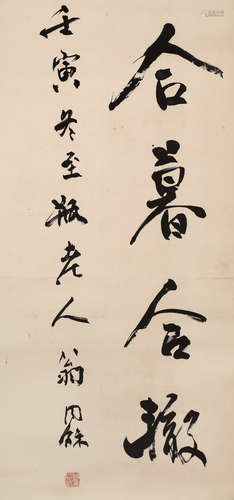 合暮合轍
壬寅冬至瓶老人翁同龢